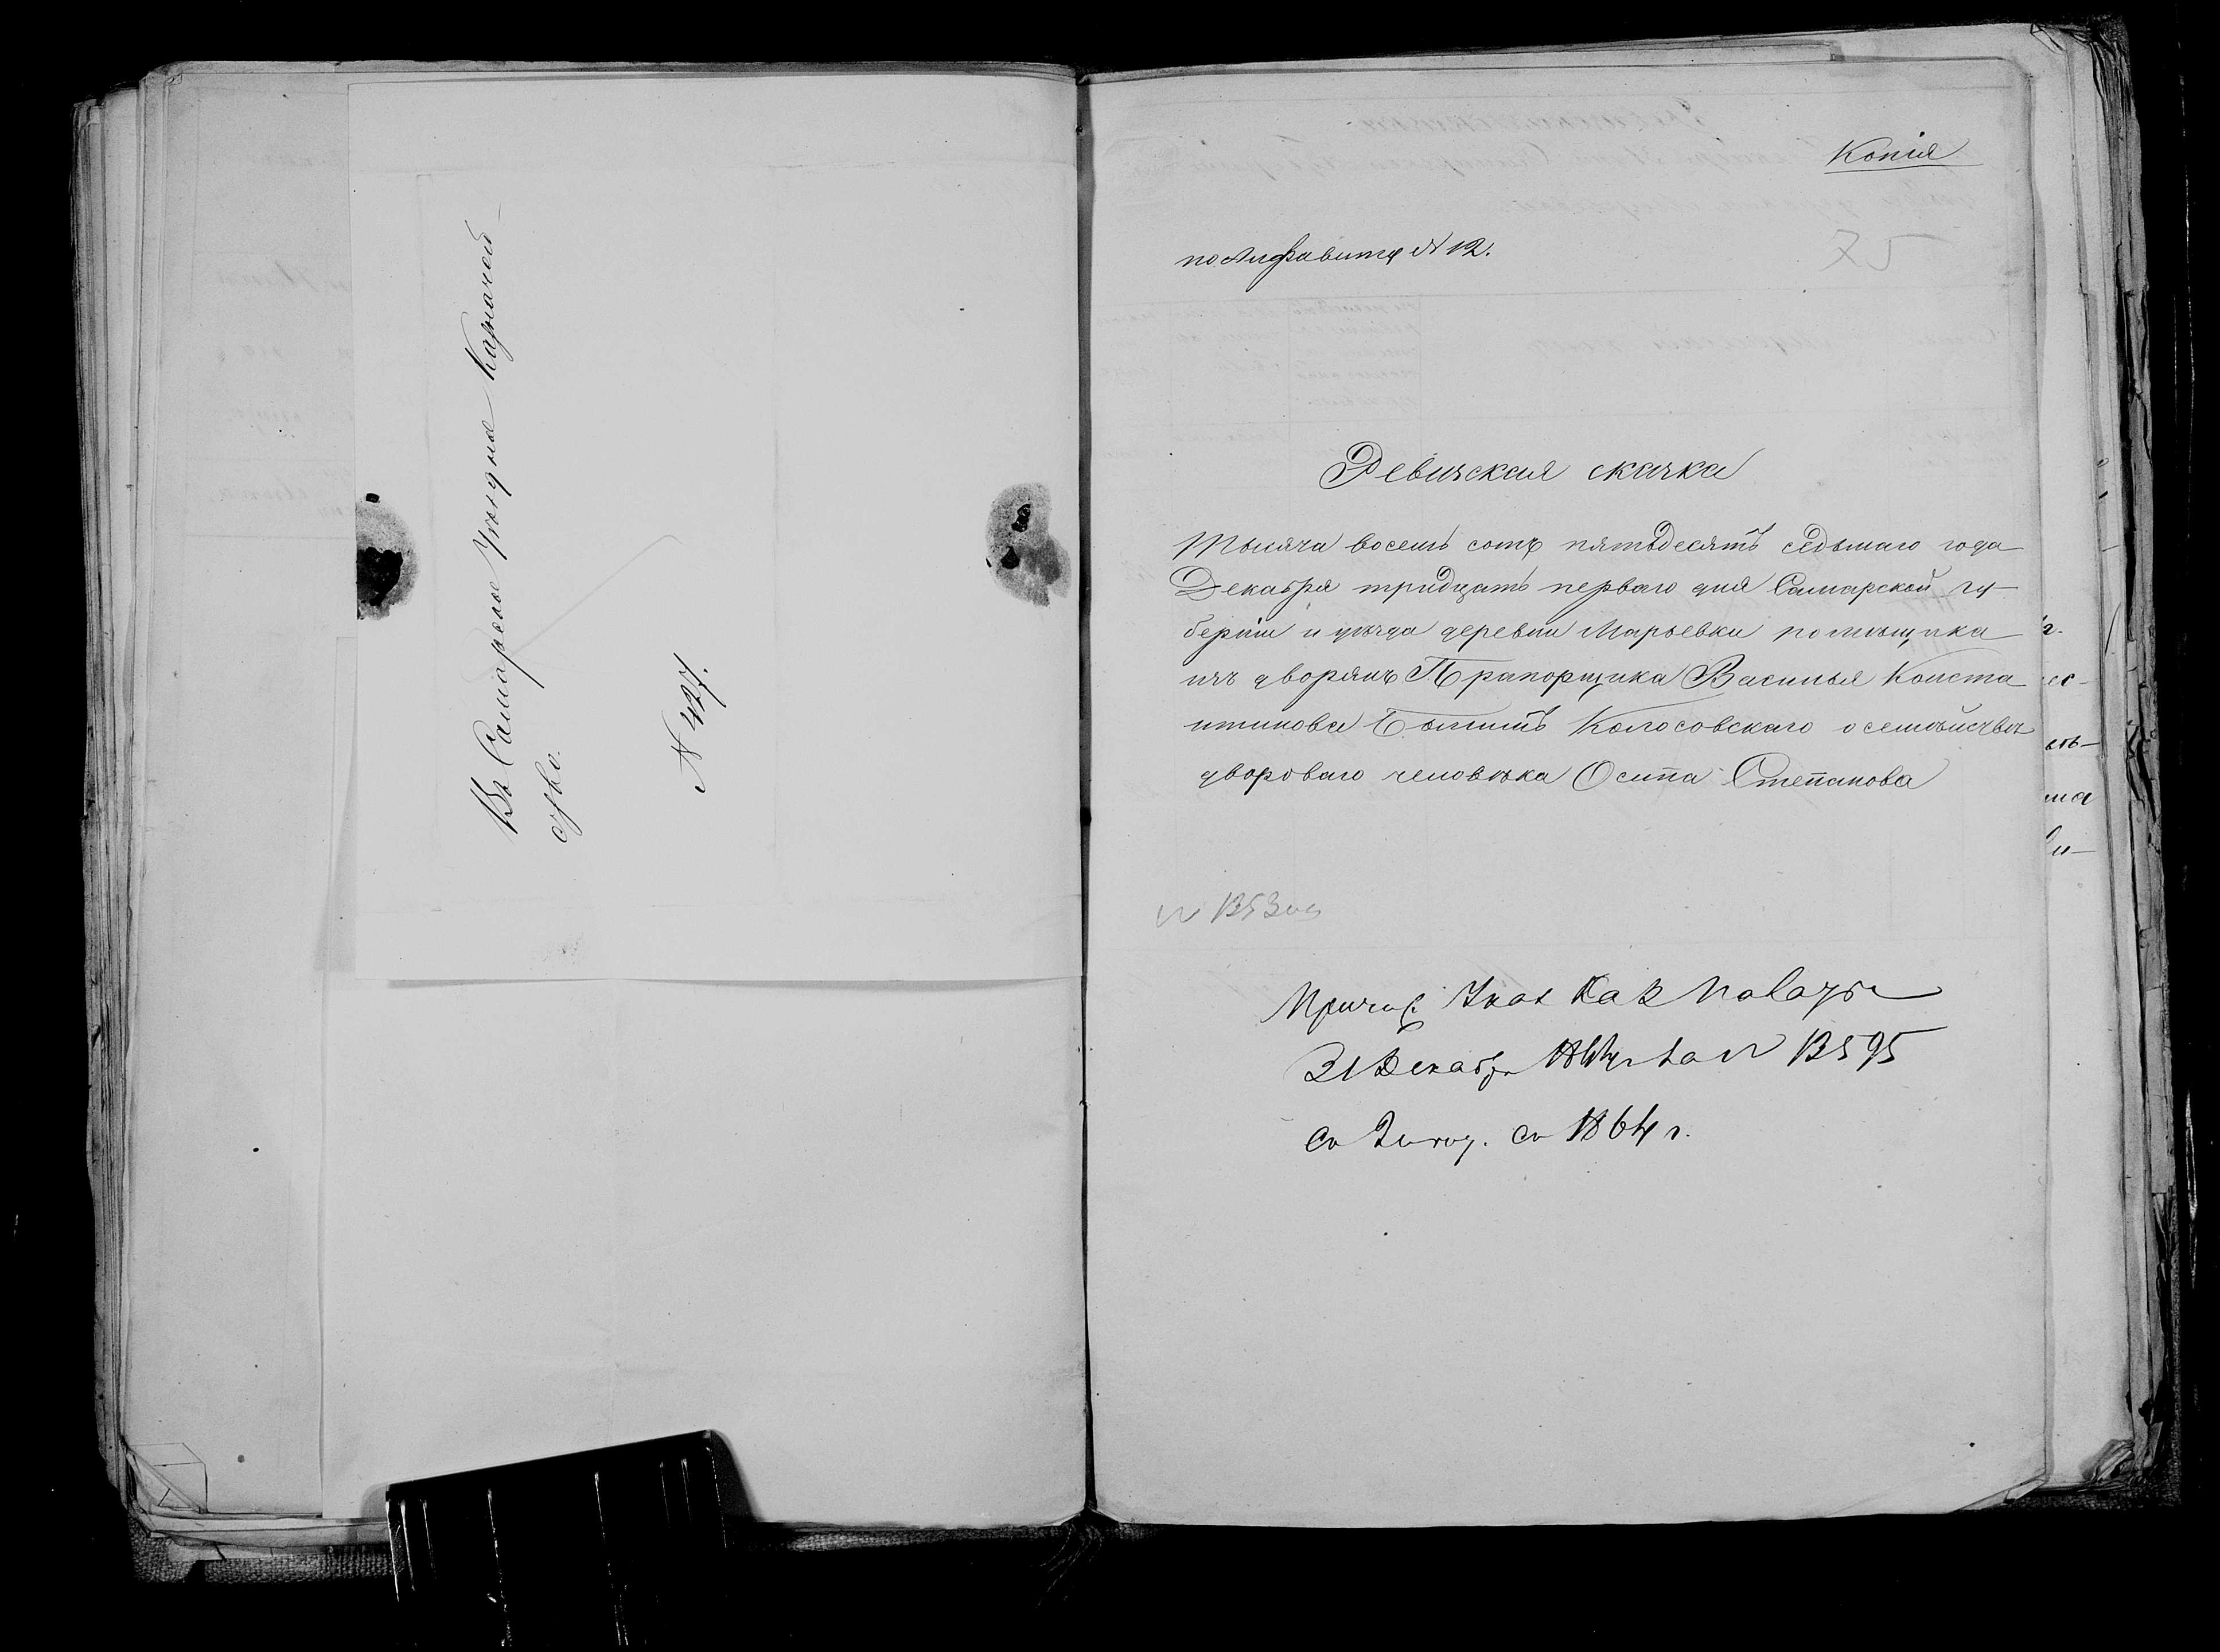 Въ Самарское Уѣздное Казначей-
ство.
N 427.
Копія
по Алфавиту N 12.
75
Ревизская сказка
Тысяча восемь сотъ пятьдесятъ седьмаго года
Декабря тридцать перваго дня Самарской гу-
берніи и уѣзда деревни Марьевки помѣщика
изъ дворянъ Прапорщика Василья Конста
нтинова Колосовскаго о семѣйствѣ
двороваго человѣка Осипа Степанова
Причис. Указ Каз Палаты
31 Декабр за N 13595
со 2 с 1864 г.